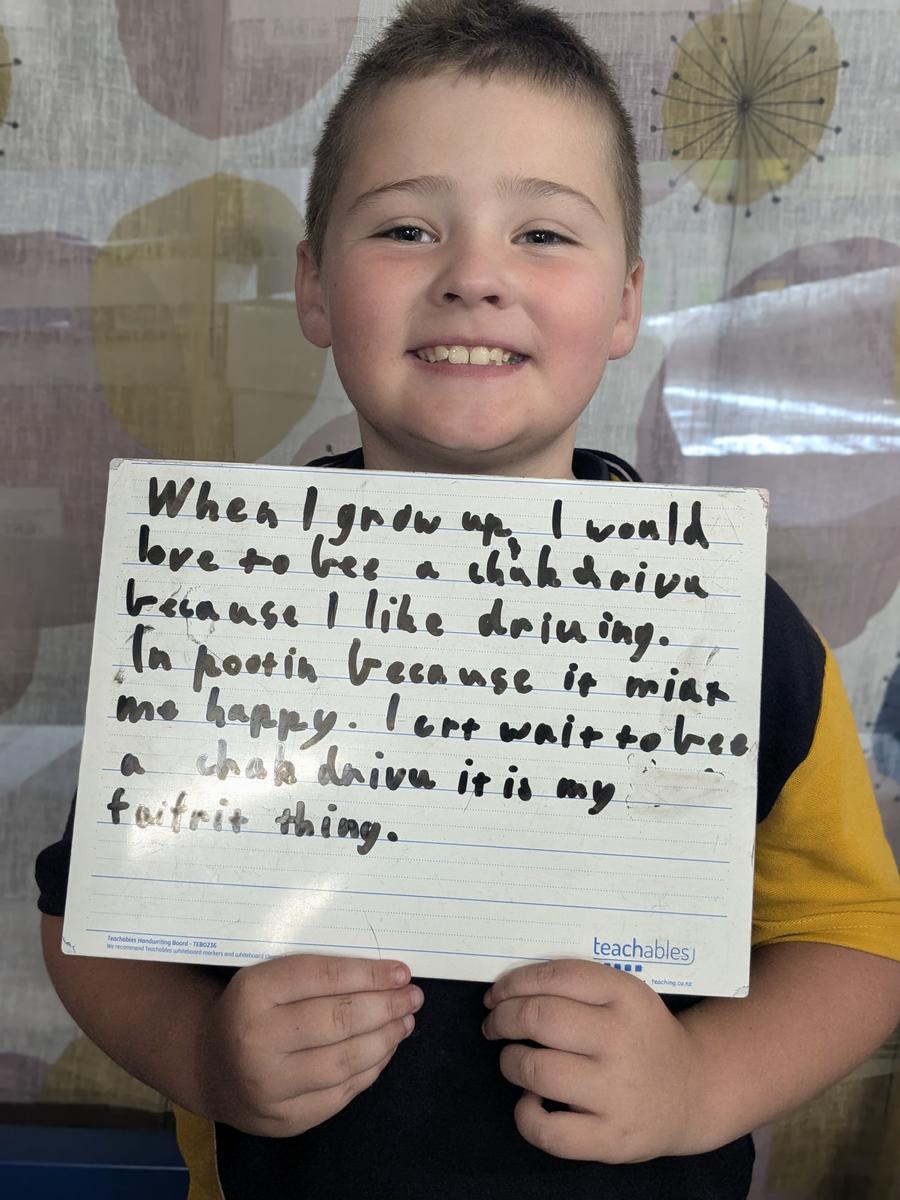 When I grow up, I would
love to bee a chak drivu
because I like driuing.
In pootin because it miax
me happy. I crt wait to bee
a chak drivu it is my
faifrit thing.
Teachables Handwriting Board - TEB0236
We recommend Teachables whiteboard markers and whiteboard
teachables
teaching.co.nz